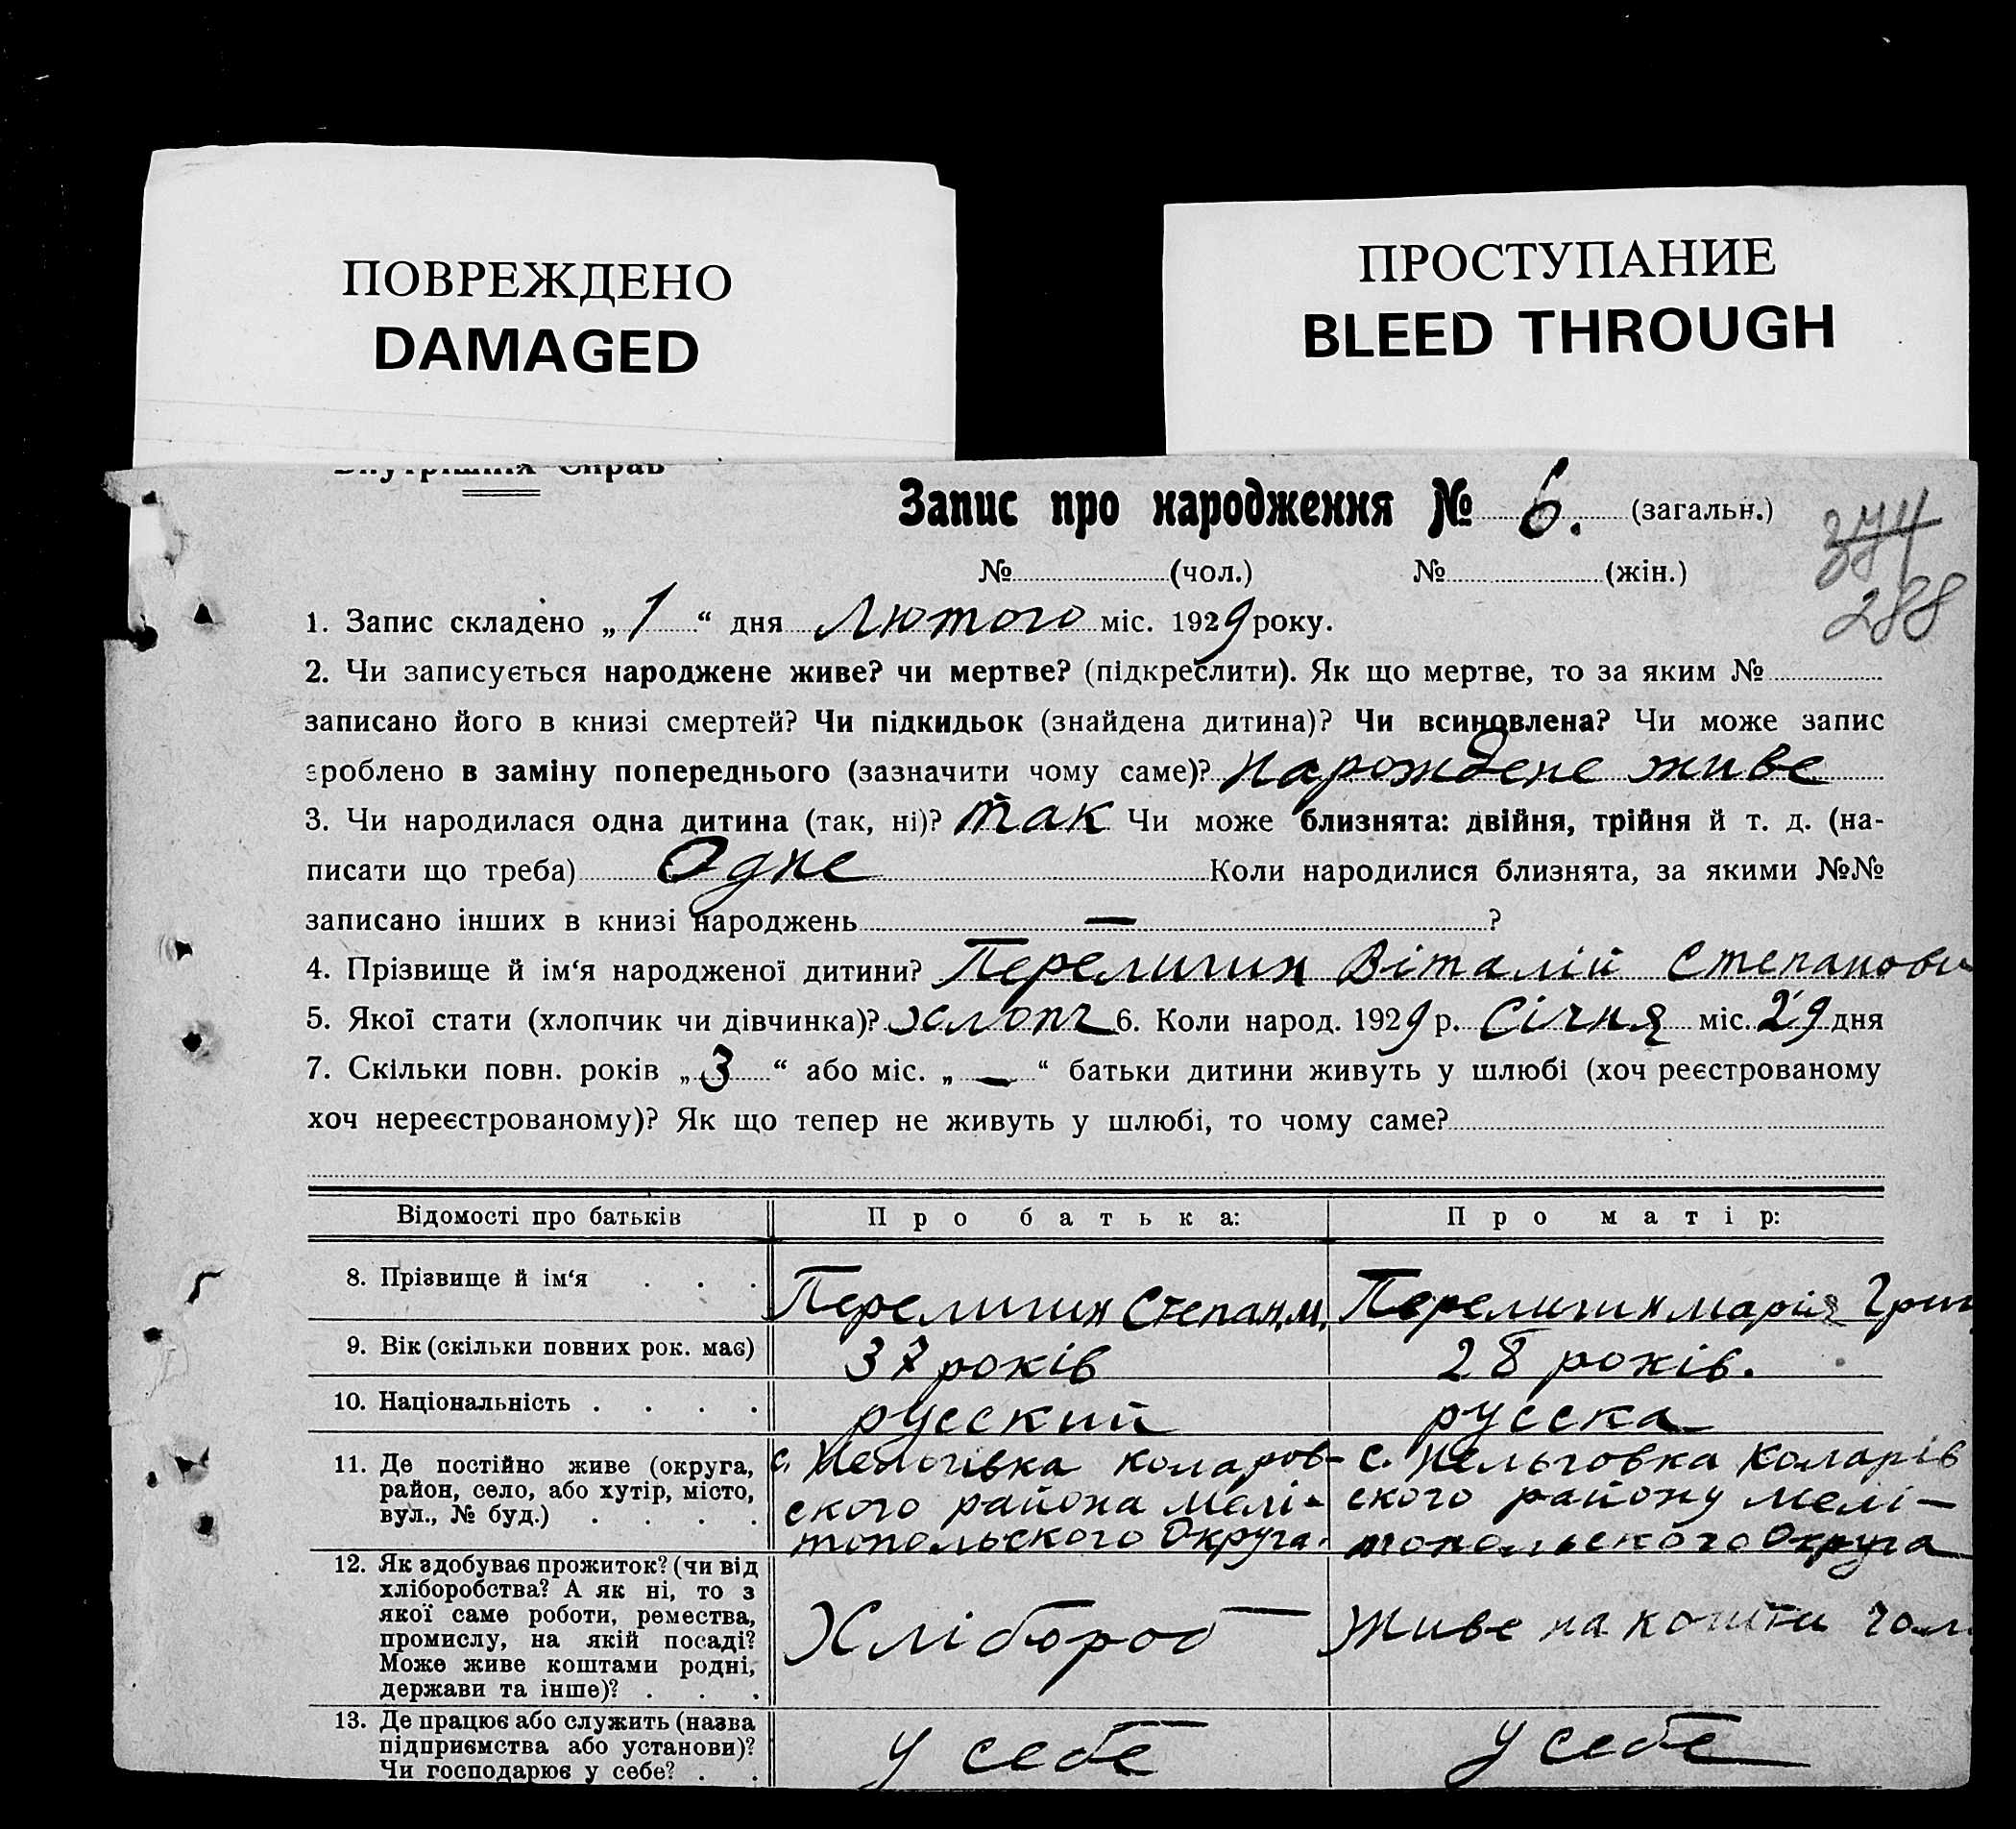 ПОВРЕЖДЕНО
DAMAGED
ПРОСТУПАНИЕ
BLEED THROUGH
Внутрішніх Справ
Запис про народження № 6. (загальн.)
374
288
№ (чол.) № (жін.)
1. Запис складено „1“ дня Лютого міс. 1929 року.
2. Чи записується народжене живе? чи мертве? (підкреслити). Як що мертве, то за яким №
записано його в книзі смертей? Чи підкидьок (знайдена дитина)? Чи всиновлена? Чи може запис
зроблено в заміну попереднього (зазначити чому саме)? Нарождене живе
3. Чи народилася одна дитина (так, ні)? Так Чи може близнята: двійня, трійня й т. д. (на-
писати що треба) Одне Коли народилися близнята, за якими №№
записано інших в книзі народжень — ?
4. Прізвище й ім‘я народженої дитини? Перелигин Віталій Степанови
5. Якої стати (хлопчик чи дівчинка)? хлопч 6. Коли народ. 1929 р. Січня міс. 29 дня
7. Скільки повн. років „3“ або міс. „—“ батьки дитини живуть у шлюбі (хоч реєстрованому
хоч нереєстрованому)? Як що тепер не живуть у шлюбі, то чому саме?
Відомості про батьків Про батька: Про матір:
8. Прізвище й ім‘я . . . Перелигин Степан м. Перелигин Марія Григ
9. Вік (скільки повних рок. має) 37 років 28 років.
10. Національність . . . . русский русска
11. Де постійно живе (округа, район, село, або хутір, місто, вул., № буд.) . . . .
с. Нельгівка коларов-
ского района Мелі-
топольского Округа.
с. Нельговка Коларів
ского району Мелі—
топольского Округа
12. Як здобуває прожиток? (чи від хліборобства? А як ні, то з якої саме роботи, ремества, промислу, на якій посаді? Може живе коштами родні, держави та інше)? . . .
Хлібороб
Живе на кошти чол
13. Де працює або служить (назва підприємства або установи)? Чи господарює у себе? . .
у себе
у себе